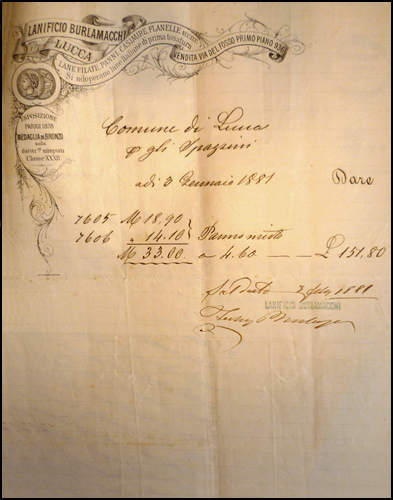 LANIFICIO BURLAMACCHI
LUCCA
LANE FILATE, PANNI, CASIMIRE, FLANELLE
Si adoperano lane Italiane di prima tosatura
VENDITA VIA DEL FOSSO PRIMO PIANO 936
ESPOSIZIONE
PARIGI 1878
MEDAGLIA DI BRONZO
Classe XXXII
Comune di Lucca
p gli Spazzini
adi 3 Gennaio 1881 Dare
7605 M 18,90
7606 " 14.10 Panno misto
M 33.00 a 4.60 — — £ 151,80
Saldato 2 1881
LANIFICIO BURLAMACCHI